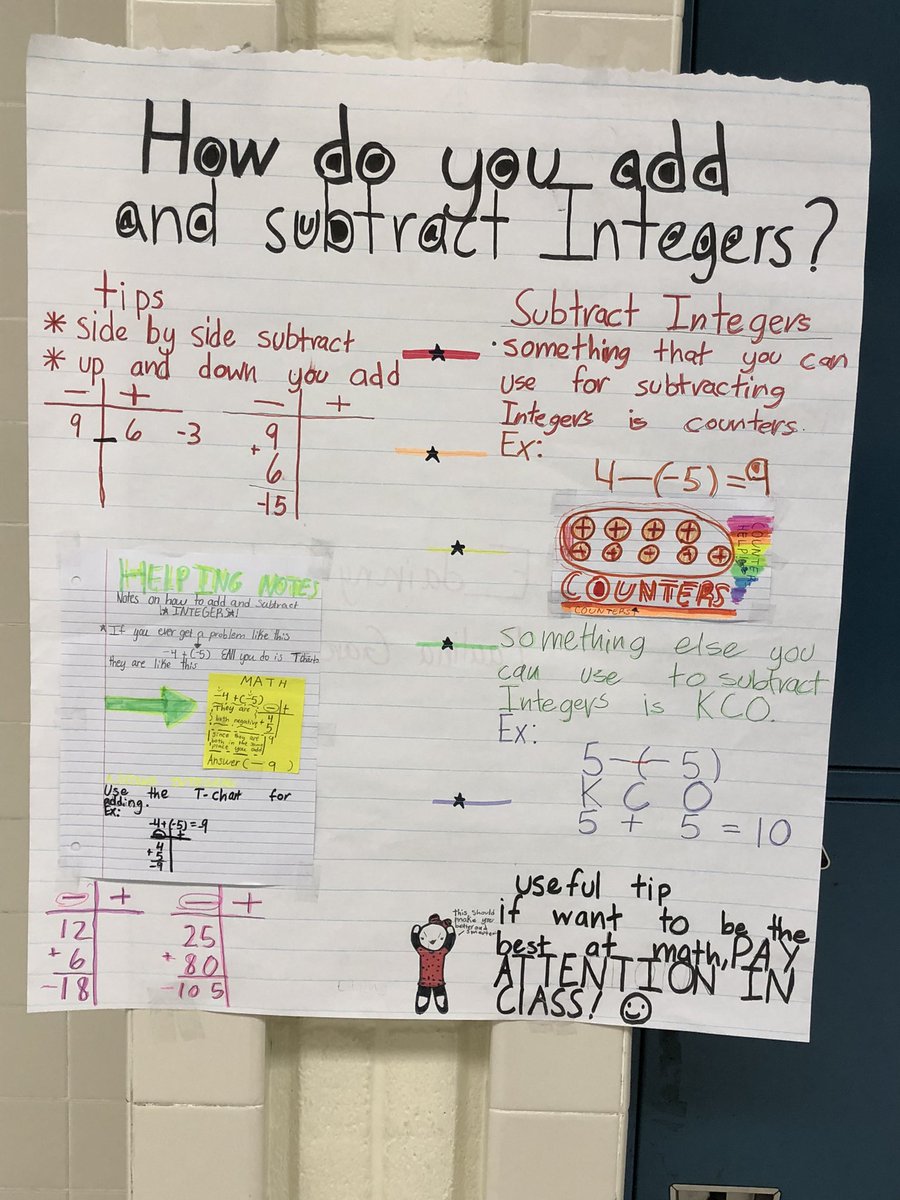 How do you add
and subtract Integers?
tips
* side by side subtract
* up and down you add
- +
9 - 6 -3
- +
9
+
6
-15
HELPING NOTES
Notes on how to add and Subtract
*INTEGERS*!
* If you ever get a problem like this
-4+(-5) All you do is T charts
they are like this
MATH
-4+(-5)
They are - +
both negative +4
5
since they are 9
both in the same
place you add
Answer (-9)
Use the T-chart for
adding.
Ex:
-4+(-5)=-9
- +
4
+5
-9
- +
12
+6
-18
- +
25
+80
-105
Subtract Integers
·something that you can
use for subtracting
Integers is counters.
Ex:
4-(-5)=9
+ + + +
+ + + + +
COUNTERS
COUNTERS
COUNTER
HELP
something else you
can use to subtract
Integers is KCO.
Ex:
5-(-5)
K C O
5 + 5 = 10
this should
make you
better and
smarter
useful tip
if want to be the
best at math, PAY
ATTENTION IN
CLASS!